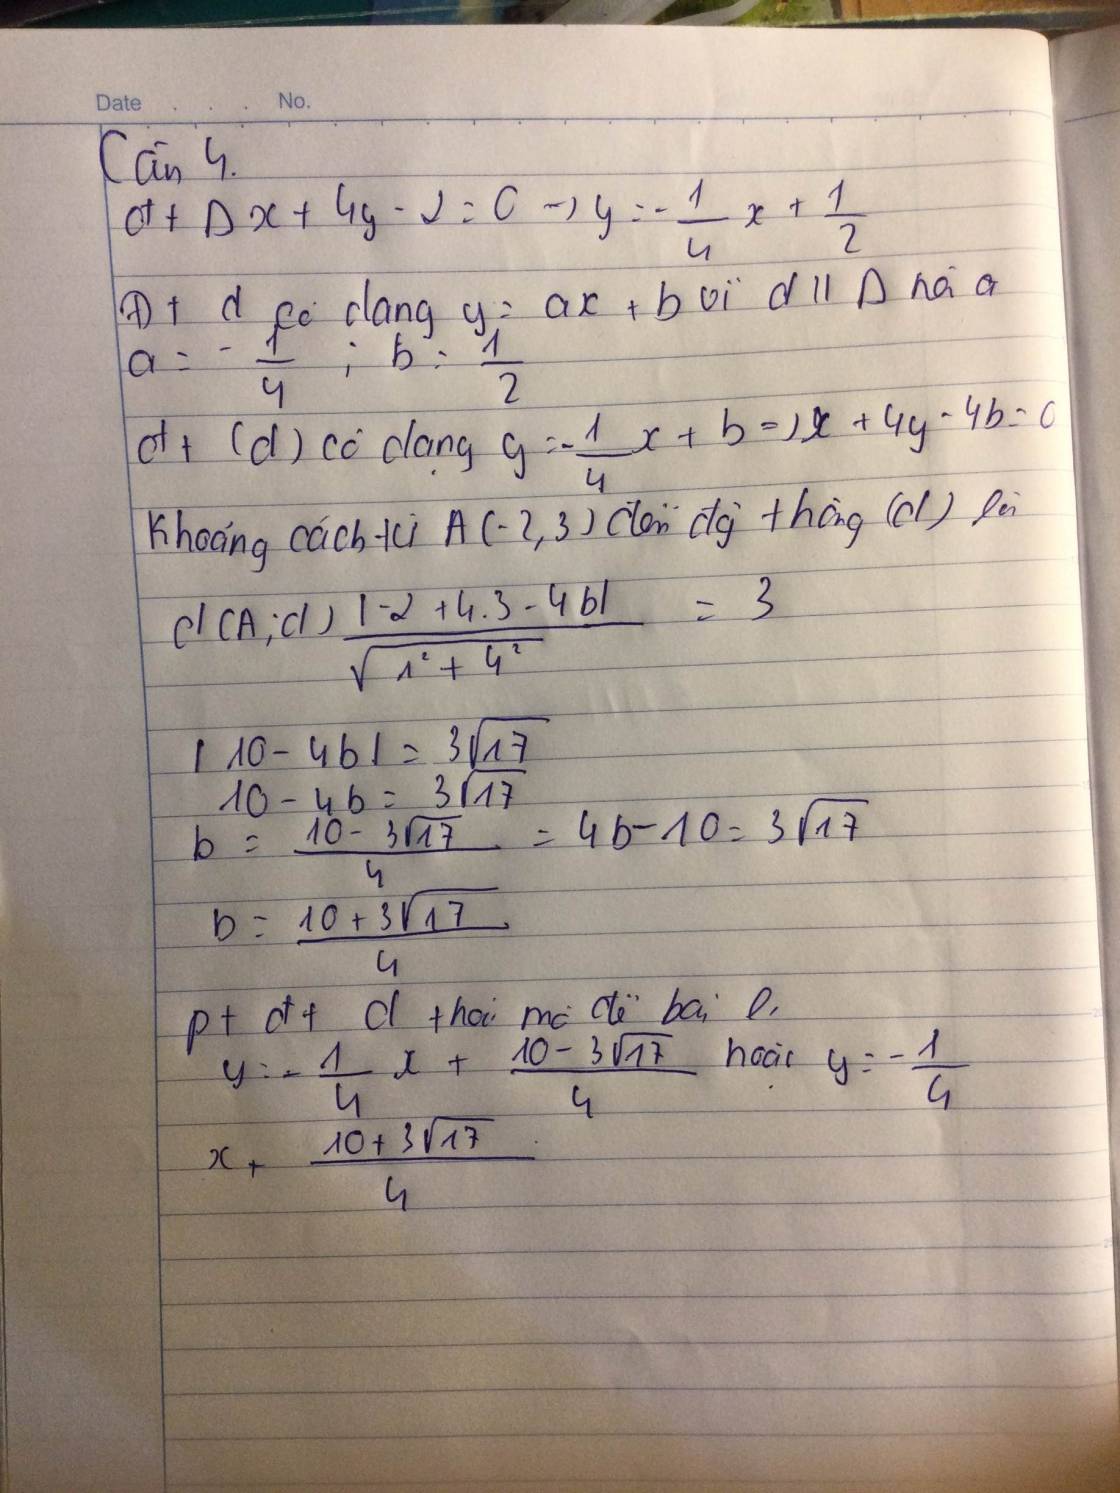 Date . . . No.
Câu 4.
đt Δ x + 4y - 2 = 0 → y = -1/4 x + 1/2
Đt d có dạng y = ax + b với d // Δ nên a
a = -1/4 ; b = 1/2
đt (d) có dạng y = -1/4 x + b => x + 4y - 4b = 0
Khoảng cách từ A (-2, 3) đến đg thẳng (d) là
d(A; d) |-2 + 4.3 - 4b| / √(1² + 4²) = 3
|10 - 4b| = 3√17
10 - 4b = 3√17
b = (10 - 3√17)/4 = 4b - 10 = 3√17
b = (10 + 3√17)/4
pt đt d đề bài
y = -1/4 x + (10 - 3√17)/4 hoặc y = -1/4
x + (10 + 3√17)/4